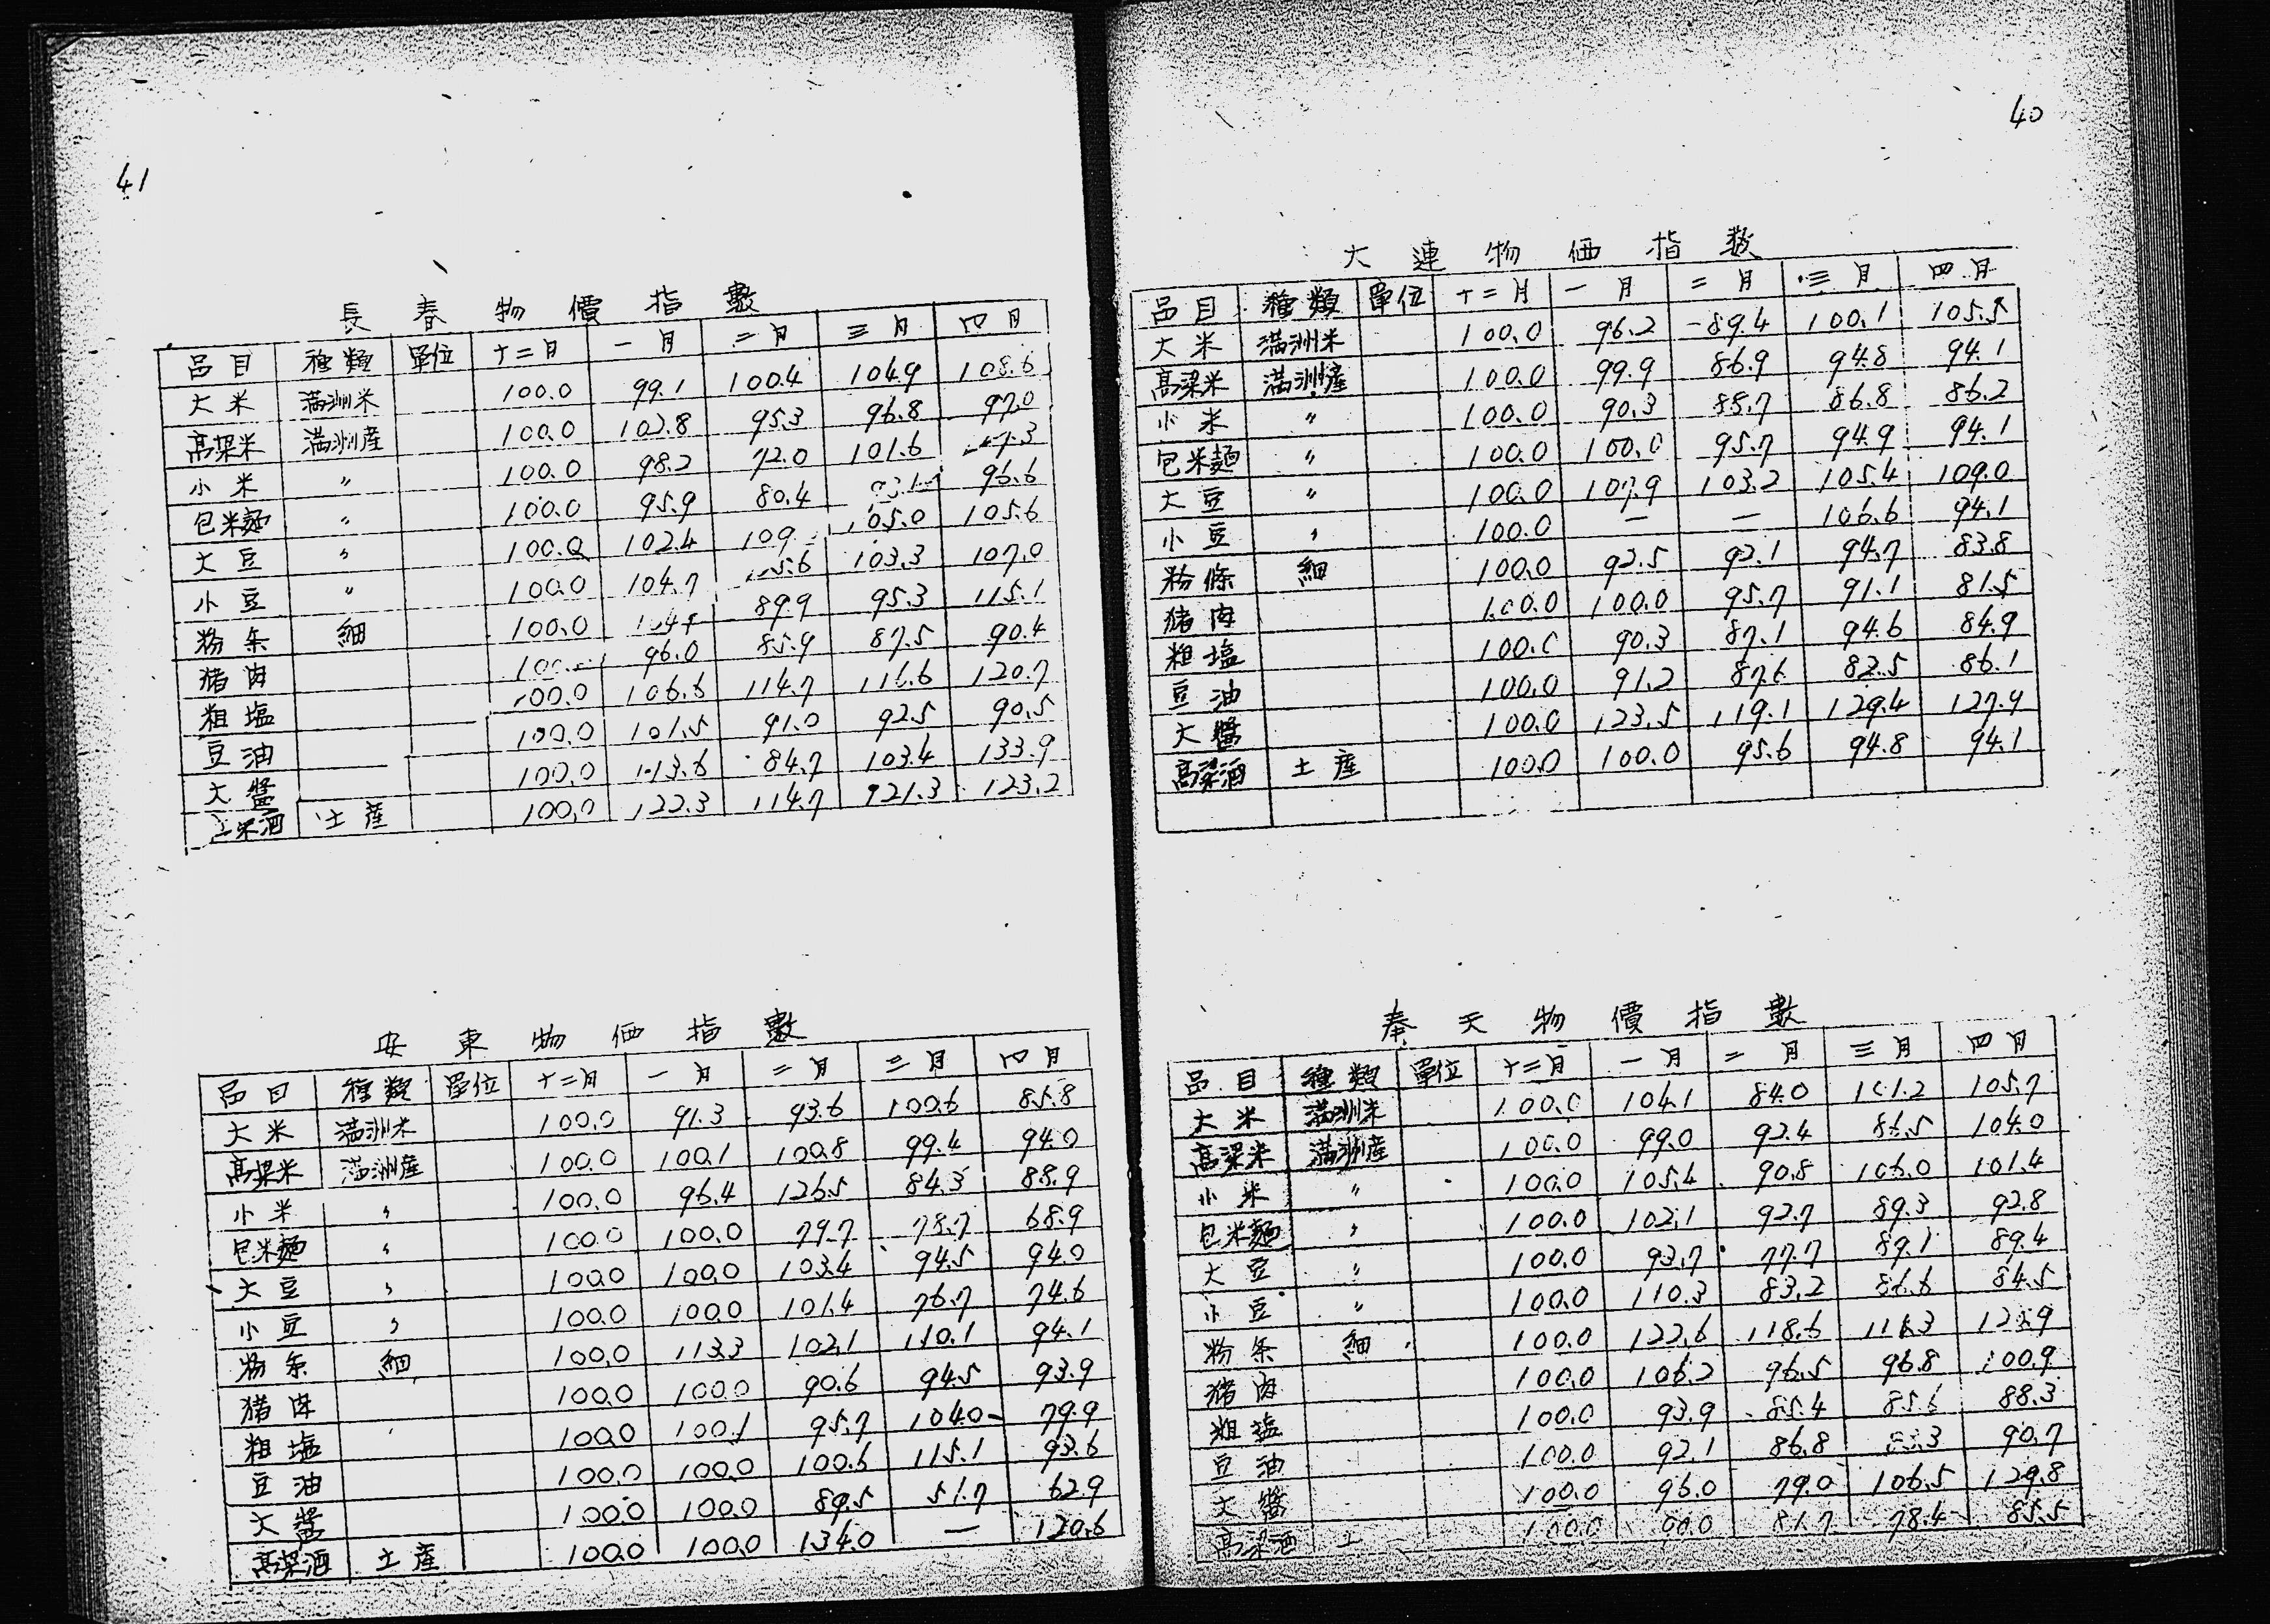 40
大連物価指数
品目 種類 單位 十二月 一月 二月 三月 四月
大米 満洲米 100.0 96.2 89.4 100.1 105.5
高梁米 満洲産 100.0 99.9 86.9 94.8 94.1
小米 〃 100.0 90.3 85.7 86.8 86.2
包米麺 〃 100.0 100.0 95.7 94.9 94.1
大豆 〃 100.0 107.9 103.2 105.4 109.0
小豆 〃 100.0 — — 106.6 94.1
粉條 細 100.0 92.5 92.1 94.7 83.8
猪肉 100.0 100.0 95.7 91.1 81.5
粗塩 100.0 90.3 87.1 94.6 84.9
豆油 100.0 91.2 87.6 82.5 86.1
大醬 100.0 123.5 119.1 129.4 127.9
高梁酒 土産 100.0 100.0 95.6 94.8 94.1
奉天物價指數
品目 種類 單位 十二月 一月 二月 三月 四月
大米 満洲米 100.0 104.1 84.0 101.2 105.7
高梁米 満洲産 100.0 99.0 92.4 86.5 104.0
小米 〃 100.0 105.4 90.8 106.0 101.4
包米麺 〃 100.0 102.1 92.7 89.3 92.8
大豆 〃 100.0 93.7 77.7 89.1 89.4
小豆 〃 100.0 110.3 83.2 86.6 84.5
粉条 細 100.0 122.6 118.6
猪肉 100.0 106.2 96.5 96.8 100.9
粗塩 100.0 93.9 85.4 85.6 88.3
豆油 100.0 92.1 86.8 90.7
大醬 100.0 96.0 79.0 106.5 129.8
高梁酒 100.0 90.0 81.7 78.4 85.5
41
長春物價指數
品目 種類 單位 十二月 一月 二月 三月 四月
大米 満洲米 100.0 99.1 100.4 104.9 108.6
高梁米 満洲産 100.0 102.8 95.3 96.8 97.0
小米 〃 100.0 98.2 72.0 101.6
包米麺 〃 100.0 95.9 80.4 96.6
大豆 〃 100.0 102.4 105.0 105.6
小豆 〃 100.0 104.7 103.3 107.0
粉条 細 100.0 89.9 95.3 115.1
猪肉 96.0 85.9 87.5 90.4
粗塩 100.0 106.6 114.7 116.6 120.7
豆油 100.0 101.5 91.0 92.5 90.5
大醬 100.0 113.6 84.7 103.4 133.9
土産 100.0 122.3 114.7 121.3 123.2
安東物価指數
品目 種類 單位 十二月 一月 二月 三月 四月
大米 満洲米 100.0 91.3 93.6 100.6 85.8
高梁米 満洲産 100.0 100.1 100.8 99.4 94.0
小米 〃 100.0 96.4 126.5 84.3 88.9
包米麺 〃 100.0 100.0 79.7 78.7 68.9
大豆 〃 100.0 100.0 103.4 94.5 94.0
小豆 〃 100.0 100.0 101.4 76.7 74.6
粉条 細 100.0 113.3 102.1 110.1 94.1
猪肉 100.0 100.0 90.6 94.5 93.9
粗塩 100.0 100.1 95.7 104.0 79.9
豆油 100.0 100.0 100.6 115.1 93.6
大醬 100.0 100.0 89.5 51.7 62.9
高梁酒 土産 100.0 100.0 134.0 — 120.6